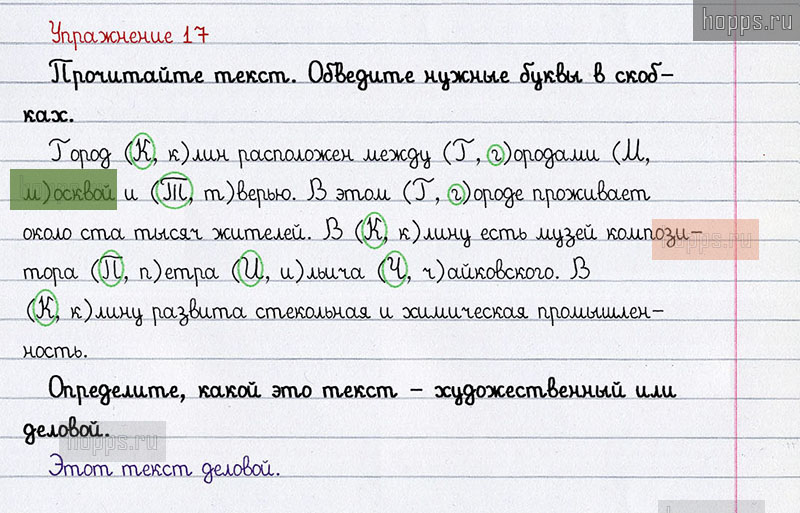 hopps.ru
Упражнение 17
Прочитайте текст. Обведите нужные буквы в скоб-
ках.
Город (К, к)лин расположен между (Г, г)ородами (М,
м)осквой и (Т, т)верью. В этом (Г, г)ороде проживает
около ста тысяч жителей. В (К, к)лину есть музей компози-
тора (П, п)етра (И, и)льича (Ч, ч)айковского. В
(К, к)лину развита стекольная и химическая промышлен-
ность.
Определите, какой это текст – художественный или
деловой.
Этот текст деловой.